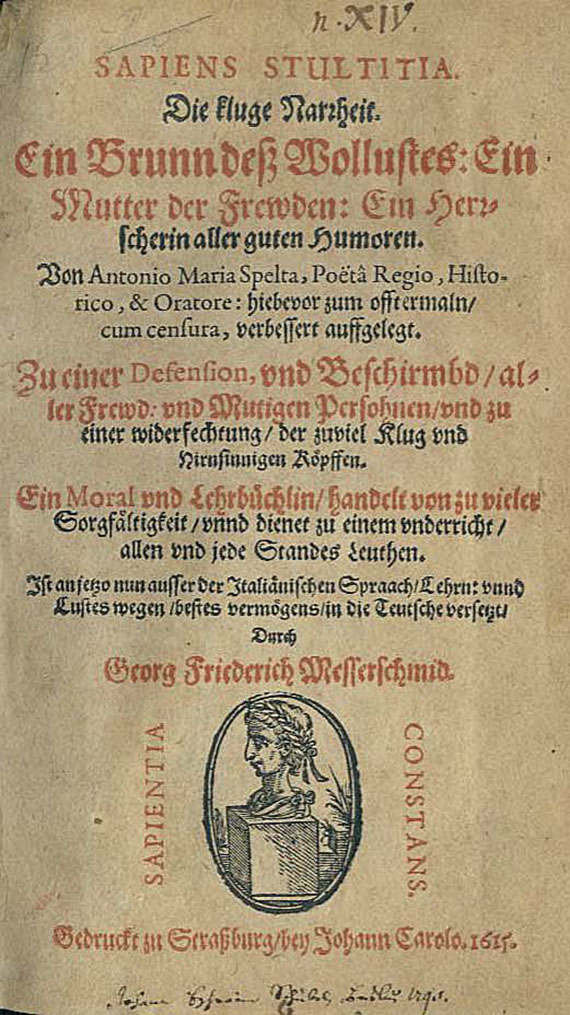 n. XIV.
SAPIENS STULTITIA.
Die kluge Narrheit.
Ein Brunn deß Wollustes: Ein
Mutter der Frewden: Ein Herr-
scherin aller guten Humoren.
Von Antonio Maria Spelta, Poëtâ Regio, Histo-
rico, & Oratore: hiebevor zum offtermaln/
cum censura, verbessert auffgelegt.
Zu einer Defension, vnd Beschirmbd/ al-
ler Frewd: vnd Mutigen Persohnen/ vnd zu
einer widerfechtung/ der zuviel Klug vnd
Hirnsinnigen Köpffen.
Ein Moral vnd Lehrbüchlin/ handelt von zu vieler
Sorgfältigkeit/ vnnd dienet zu einem vnderricht/
allen vnd jede Standes Leuthen.
Ist an jetzo nun ausser der Italiänischen Spraach/ Lehrn: vnnd
Lustes wegen/ bestes vermögens/ in die Teutsche versetzt/
Durch
Georg Friederich Messerschmid.
SAPIENTIA
CONSTANS.
Gedruckt zu Straßburg/ bey Johann Carolo. 1615.
Johann